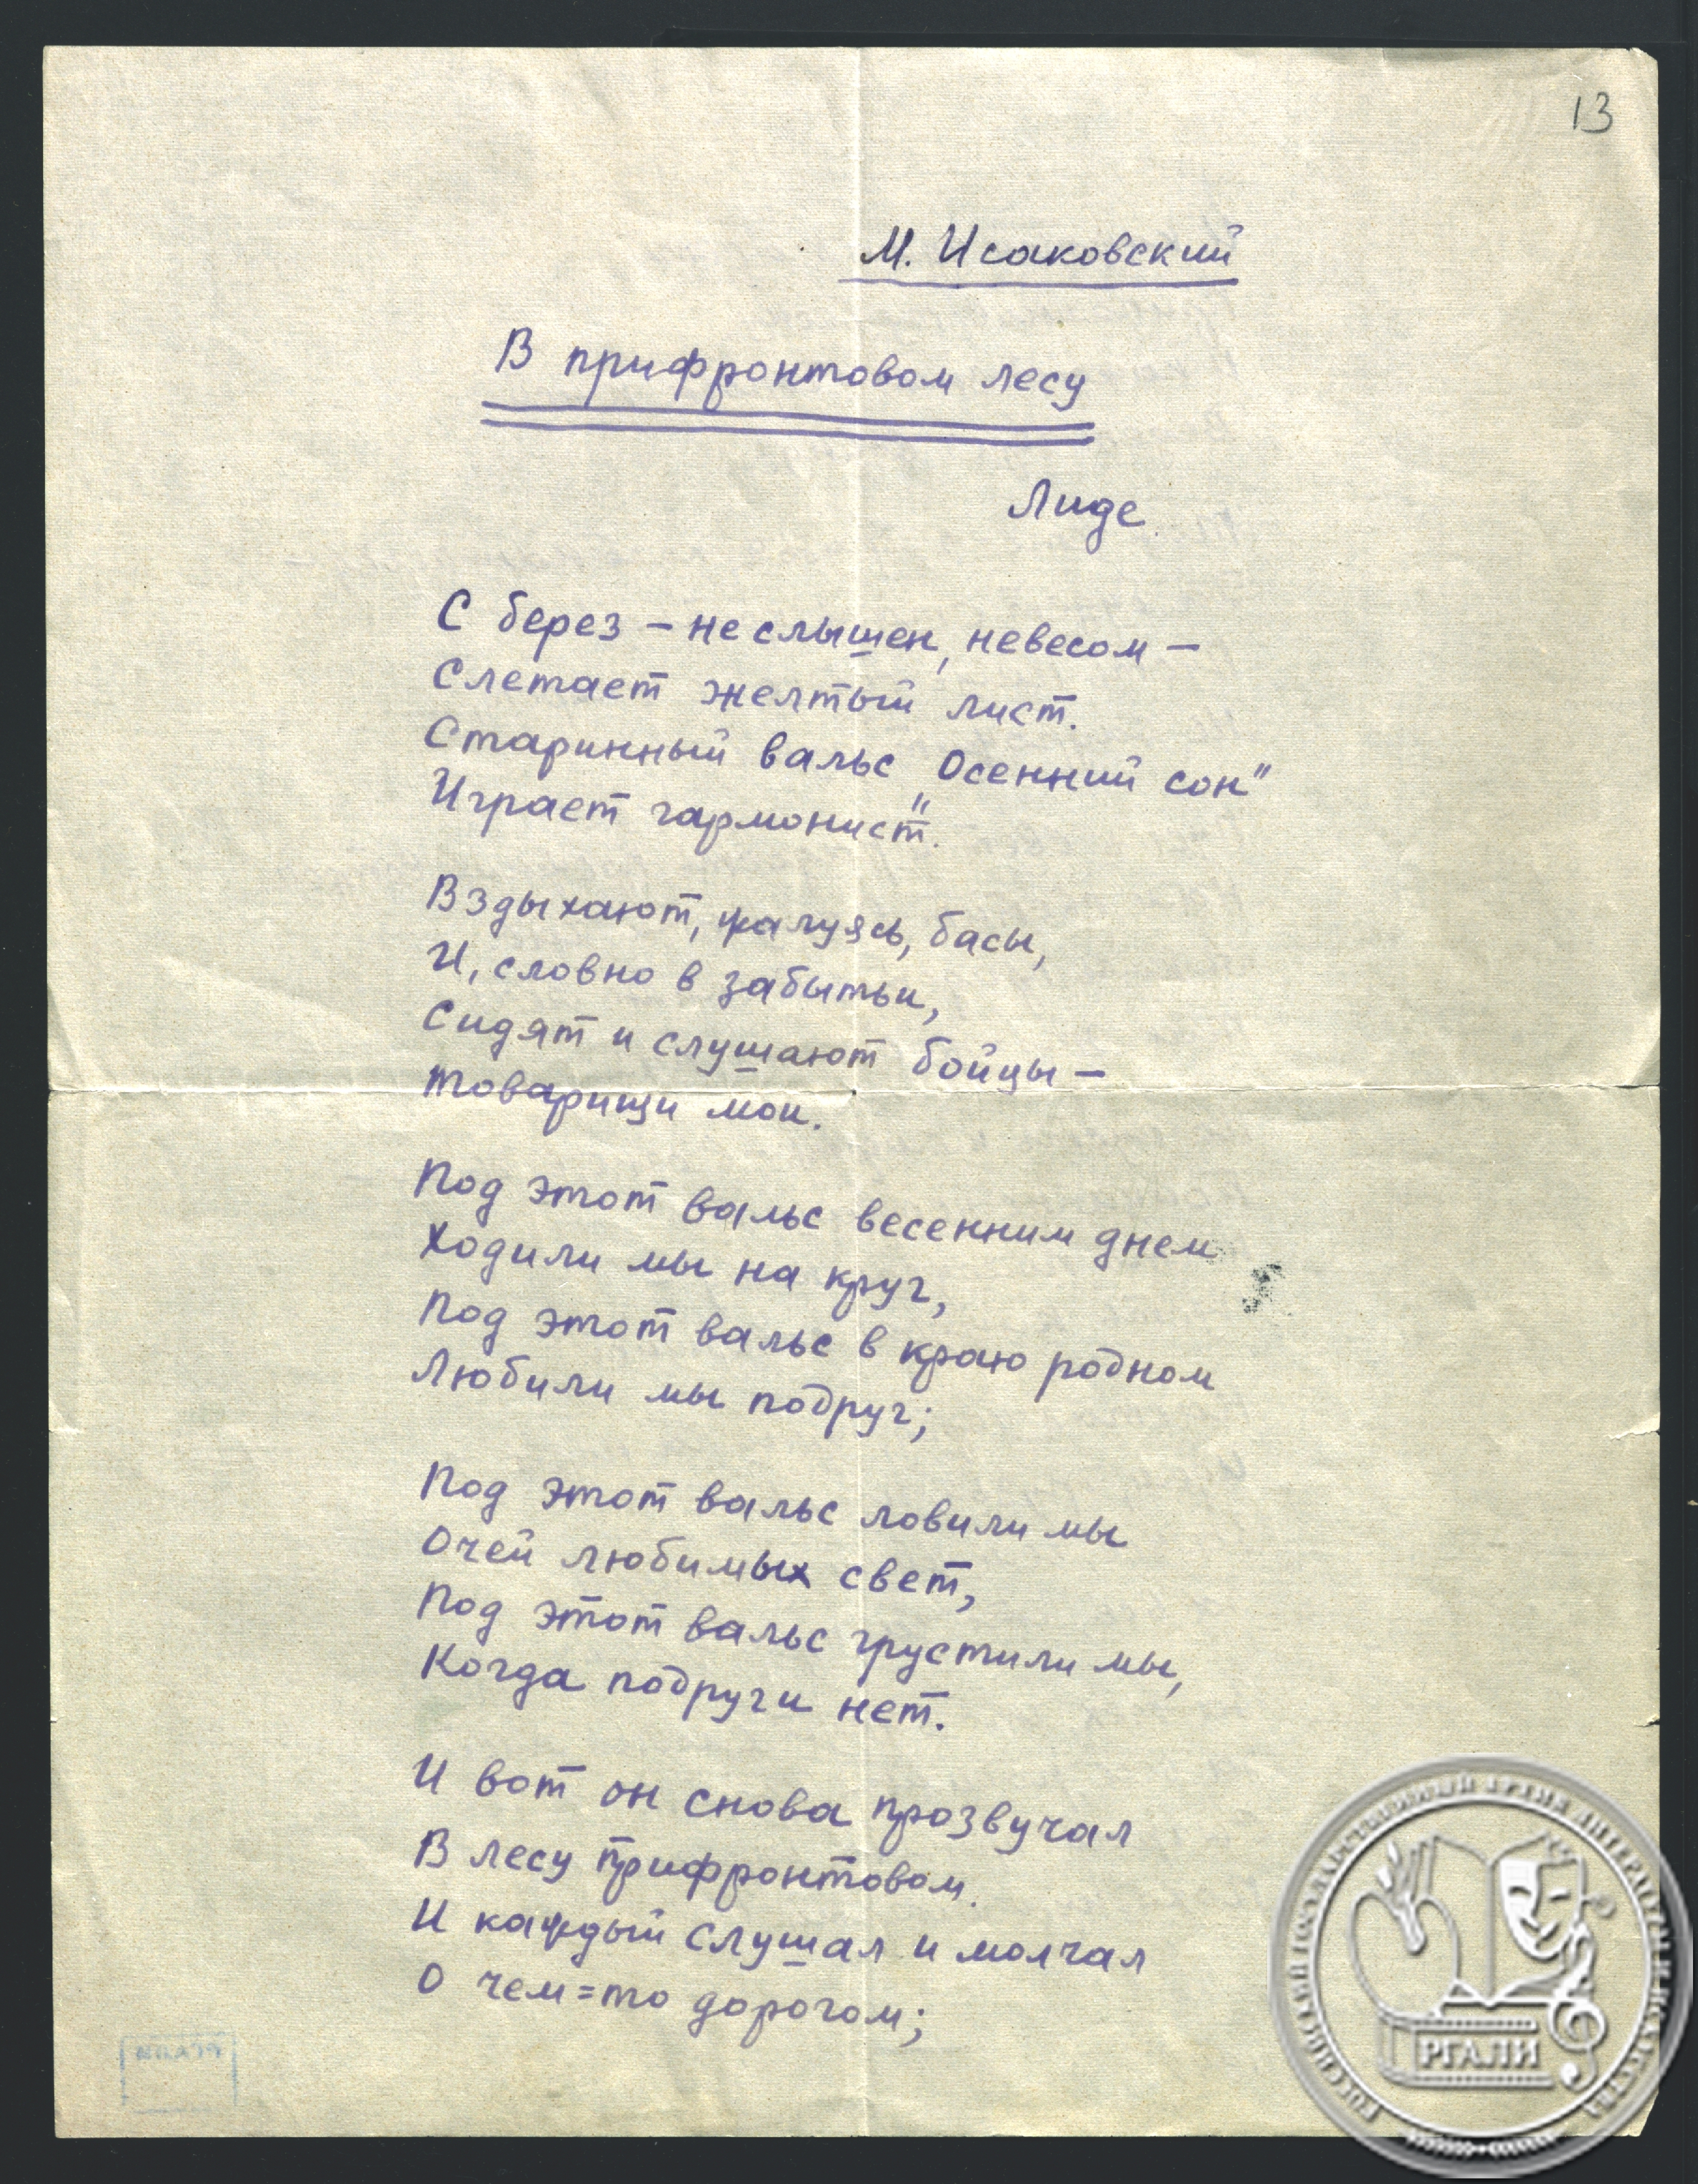 13
М. Исаковский
В прифронтовом лесу
Лиде
С берез – не слышен, невесом –
Слетает желтый лист.
Старинный вальс „Осенний сон"
Играет гармонист.
Вздыхают, жалуясь, басы,
И, словно в забытьи,
Сидят и слушают бойцы –
Товарищи мои.
Под этот вальс весенним днем
Ходили мы на круг,
Под этот вальс в краю родном
Любили мы подруг;
Под этот вальс ловили мы
Очей любимых свет,
Под этот вальс грустили мы,
Когда подруги нет.
И вот он снова прозвучал
В лесу прифронтовом.
И каждый слушал и молчал
О чем=то дорогом;
РОССИЙСКИЙ ГОСУДАРСТВЕННЫЙ АРХИВ ЛИТЕРАТУРЫ И ИСКУССТВА
РГАЛИ